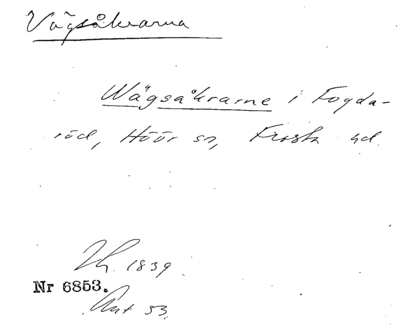 Vägsåkrarna
Wägsåkrarne i Fogda-
röd, Höör sn, Frosta hd.
Lh. 1839.
Nr 6853.
Ant 53.